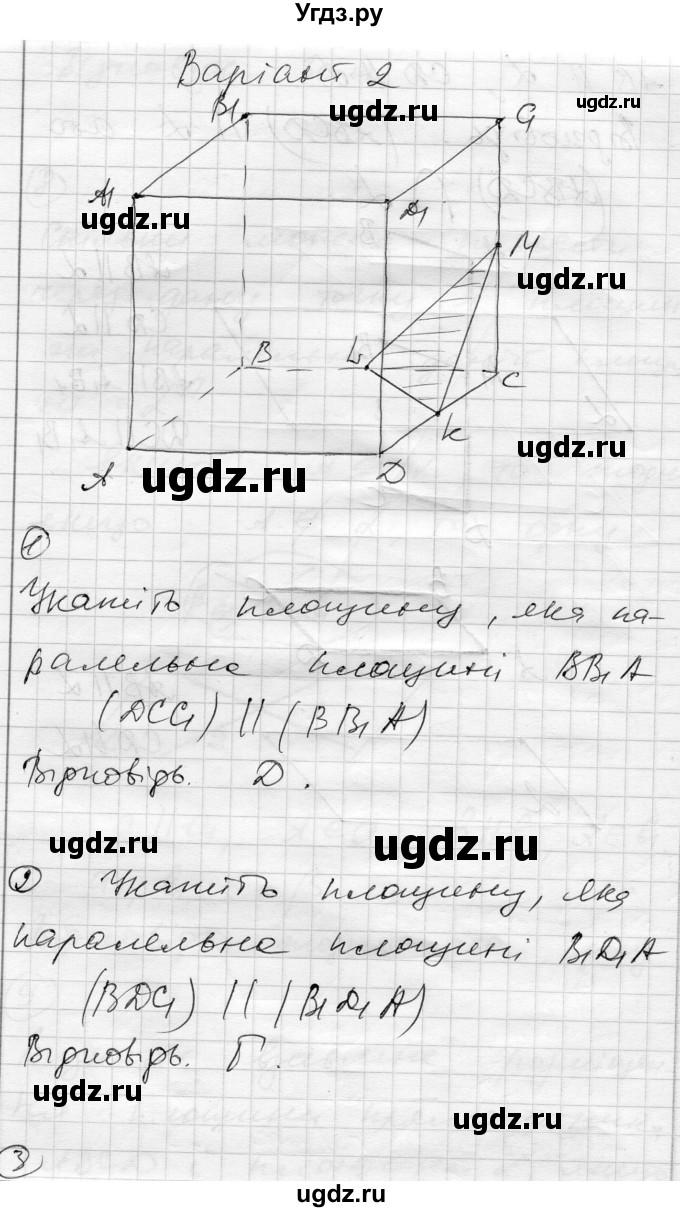 Угдз.ру
Варіант 2
ugdz.ru
ugdz.ru
B₁
C₁
A₁
D₁
ugdz.ru
M
ugdz.ru
B
L
C
K
ugdz.ru
A
D
ugdz.ru
1
Укажіть площину, яка па-
ралельна площині BB₁A
(DCC₁) || (BB₁A)
Відповідь. Д.
ugdz.ru
ugdz.ru
2 Укажіть площину, яка
паралельна площині B₁D₁A
(BDC₁) || (B₁D₁A)
Відповідь. Г.
ugdz.ru
ugdz.ru
3
ugdz.ru